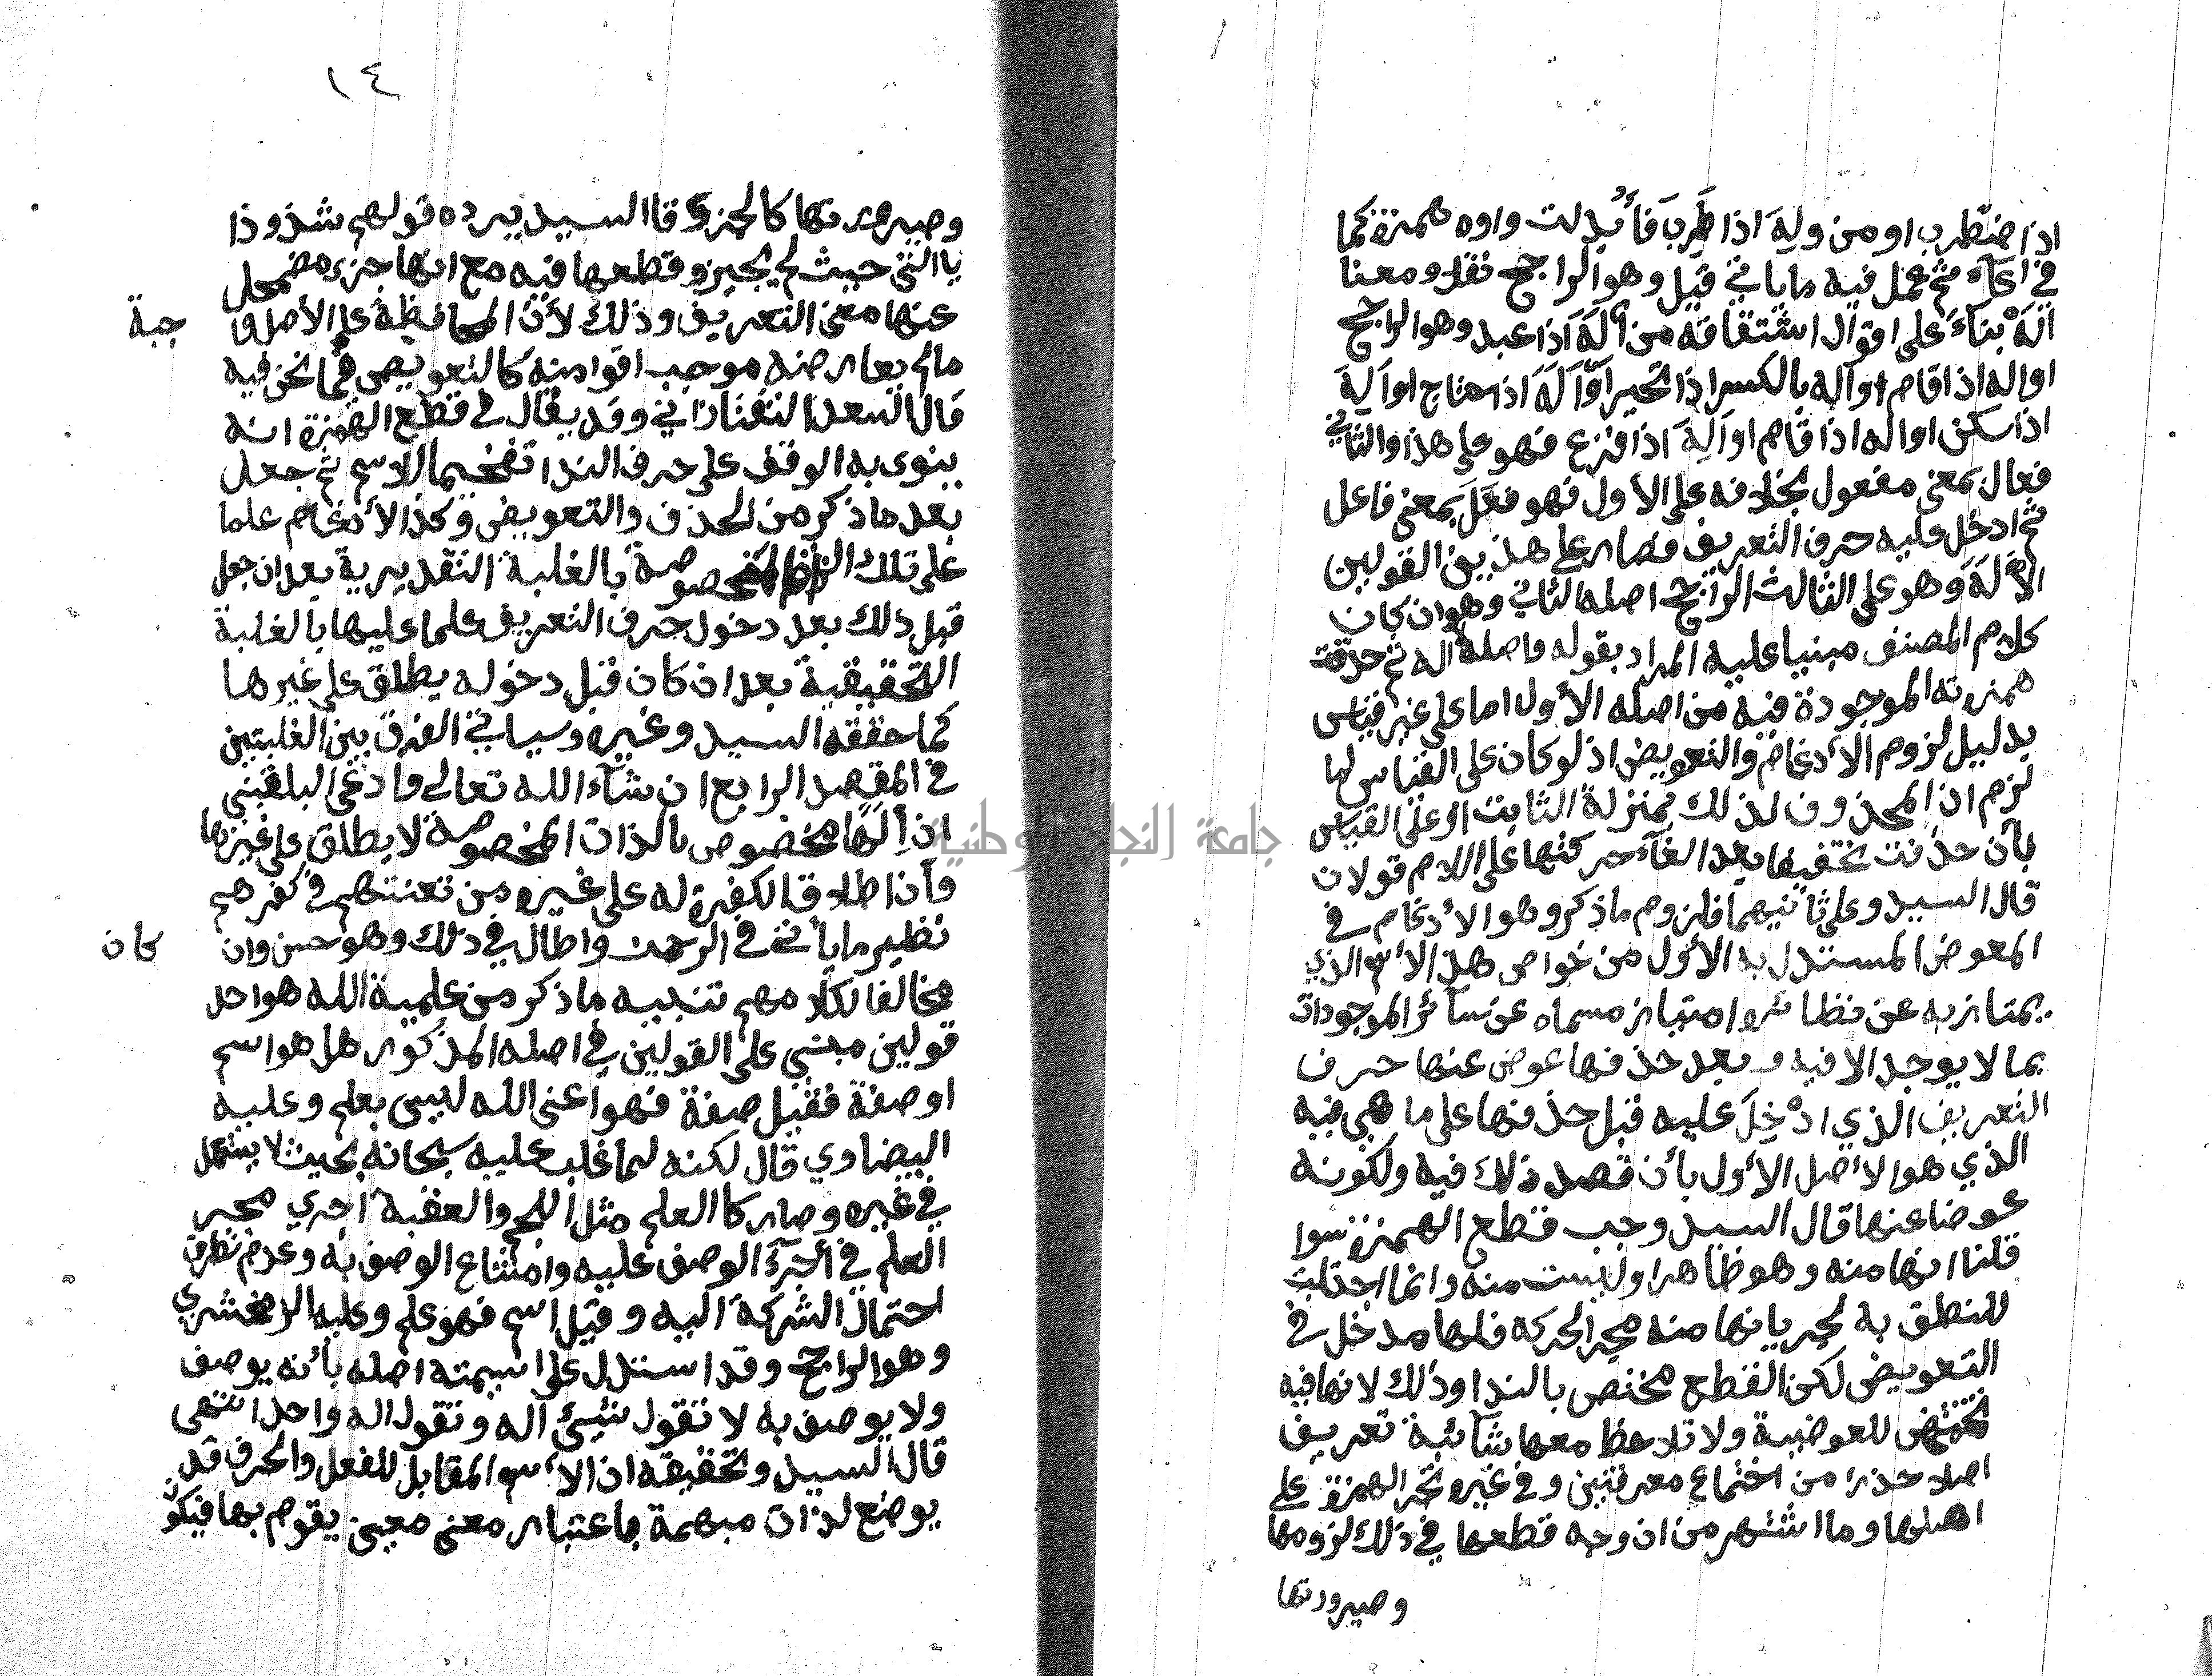 اذا ضطرب او من وَلِهَ اذا طَرِبَ فأُبدلت واوه همزة كما
في اعآء ثم عمل فيه ماياتي قيل وهو الراجح نقلا ومعنا
الَهْ بنآءً على اقوال اشتقاقه من أَلَهَ اذا عبد وهو الراجح
او اله اذا اقام او اله بالكسر اذا تحير او أَلَهَ اذا حتاج او ألِهَ
اذا سكن او اله اذا قام او ألِهَ اذا فزع فهو على هذا والثاني
فعال بمعنى مفعول بخلافه على الأول فهو فعل بمعنى فاعل
ثم ادخل عليه حرف التعريف فصار على هذين القولين
الألَهَ وهو على الثالث الراجح اصله الثاني وهو ان كان
كلام المصنف مبنيا عليه المراد بقوله واصله اله ثم حذفت
همزته الموجودة فيه من اصله الأول اما على غير قياس
بدليل لزوم الأدغام والتعويض اذ لو كان على القياس لما
لزم اذ المحذوف لذلك بمنزلة الثابت او على القياس
بأن حذفت تخفيفا بعد القآء حركتها على اللام قولان
قال السيد وعلى ثانيهما فلزوم ماذكر وهو الأدغام في
المعوض المستدل به الأول من خواص هذا الأسم الذي
يمتاز به عن نظائره امتياز مسماه عن سائر الموجودات
بما لا يوجد الا فيه و بعد حذفها عوض عنها حرف
التعريف الذي ادْخِلَ عليه قبل حذفها على ما هي فيه
الذي هو الأصل الأول بأن قصد ذلك فيه ولكونه
عوضا عنها قال السيد وجب قطع الهمزة سوا
قلنا انها منه وهو ظاهر او ليست منه وانما اجتلبت
للنطق به لجريانها منه مجر الحركه فلها مدخل في
التعويض لكن القطع مختص بالندا وذلك لانها فيه
تتمحض للعوضية ولا تلاحظ معها شائبة تعريف
اصلا حذرا من اجتماع معرفتين وفي غيره تجر الهمزة على
اصلها وما اشتهر من ان وجه قطعها في ذلك لزومها
وصيرورتها
١٤
وصيرورتها كالجزؤ قا السيد يرده قولهم شذوذا
يا التي حيث لم يجيزو قطعها فيه مع انها جزء مضمحل
عنها معنى التعريف وذلك لأن المحافظة على الأصل وا
جبة
مالم يعارضه موجب اقوا منه كالتعويض فيما نحن فيه
قال السعد التفتازاني وقد يقال في قطع الهمزة انه
ينوى به الوقف على حرف الندا تفخيما للاسم ثم جعل
بعد ما ذكر من الحذف والتعويض وكذا الأدغام علما
على تلك الذات المخصوصة بالغلبة التقديرية بعد ان جعل
قبل ذلك بعد دخول حرف التعريف علما عليها بالغلبة
التحقيقية بعد ان كان قبل دخوله يطلق على غيرها
كما حققه السيد وغيره وسياتي الفرق بين الغلبتين
في المقصد الرابع ان شآء الله تعالى وادعى البلقيني
ان إلَهًا مخصوص بالذات المخصوصة لا يطلق على غيرها
وأن اطلاق الكفرة له على غيره من تعنتهم في كفرهم
نظير ماياتي في الرحمن واطال في ذلك وهو حسن وان
كان
مخالفا لكلامهم تنبيه ما ذكر من علمية الله هو احد
قولين مبني على القولين في اصله المذكور هل هو اسم
او صفة فقيل صفة فهو اعنى الله ليس بعلم وعليه
البيضاوي قال لكنه لما غلب عليه سبحانه بحيث لا يستعمل
في غيره وصار كالعلم مثل اللجم والعقبة اجري مجر
العلم في أجرآء الوصف عليه وامتناع الوصف به وعدم تطرق
احتمال الشركة اليه وقيل اسم فهو علم وعليه الزمخشري
وهو الراجح وقد استدل على اسيمته اصله بأنه يوصف
ولا يوصف به لا تقول شئ اله وتقول اله واحد انتهى
قال السيد وتحقيقه ان الأسم المقابل للفعل والحرف قد
يوضع لذات مبهمة باعتبار معنى معين يقوم بها فيكون
جامعة النجاح الوطنية